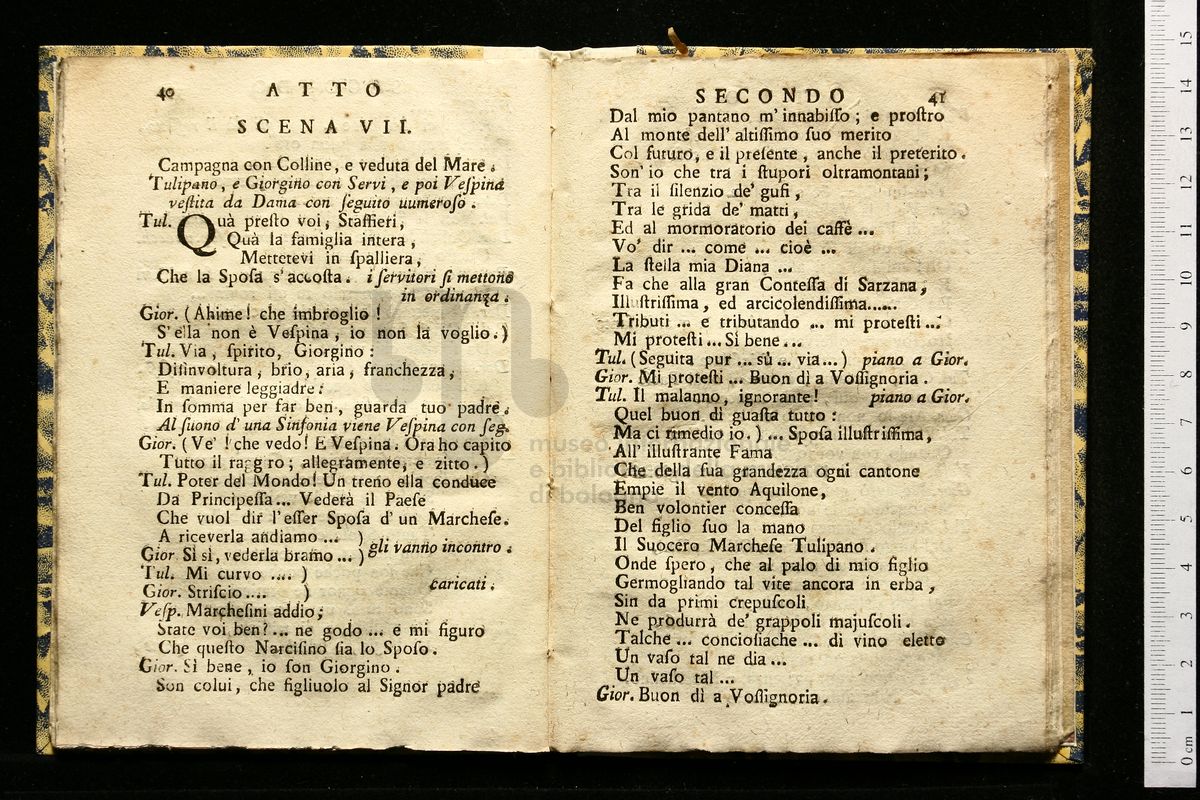 40 ATTO
SCENA VII.
Campagna con Colline, e veduta del Mare.
Tulipano, e Giorgino con Servi, e poi Veſpina
veſtita da Dama con ſeguito uumeroſo.
Tul. Quà preſto voi, Staffieri,
Quà la famiglia intera,
Mettetevi in ſpalliera,
Che la Spoſa s'accoſta. i ſervitori ſi mettono
in ordinanza.
Gior. (Ahime! che imbroglio!
S'ella non è Veſpina, io non la voglio.)
Tul. Via, ſpirito, Giorgino:
Diſinvoltura, brio, aria, franchezza,
E maniere leggiadre:
In ſomma per far ben, guarda tuo padre.
Al ſuono d'una Sinfonia viene Veſpina con ſeg.
Gior. (Ve'! che vedo! E Veſpina. Ora ho capito
Tutto il raggro; allegramente, e zitto.)
Tul. Poter del Mondo! Un treno ella conduce
Da Principeſſa... Vederà il Paeſe
Che vuol dir l'eſſer Spoſa d'un Marcheſe.
A riceverla andiamo ... )
Gior Sì sì, vederla bramo ... ) gli vanno incontro.
Tul. Mi curvo .... )
Gior. Striſcio .... ) caricati.
Veſp. Marcheſini addio;
State voi ben? ... ne godo ... e mi figuro
Che queſto Narciſino ſia lo Spoſo.
Gior. Sì bene, io ſon Giorgino.
Son colui, che figliuolo al Signor padre
SECONDO 41
Dal mio pantano m'innabiſſo; e proſtro
Al monte dell'altiſſimo ſuo merito
Col futuro, e il preſente, anche il preterito.
Son'io che tra i ſtupori oltramontani;
Tra il ſilenzio de' guſi,
Tra le grida de' matti,
Ed al mormoratorio dei caffè ...
Vo' dir ... come ... cioè ...
La ſtella mia Diana ...
Fa che alla gran Conteſſa di Sarzana,
Illuſtriſſima, ed arcicolendiſſima......
Tributi ... e tributando ... mi proteſti ...
Mi proteſti ... Sì bene...
Tul. (Seguita pur ... sù ... via...) piano a Gior.
Gior. Mi proteſti ... Buon dì a Voſſignoria.
Tul. Il malanno, ignorante! piano a Gior.
Quel buon dì guaſta tutto:
Ma ci rimedio io.) ... Spoſa illuſtriſſima,
All' illuſtrante Fama
Che della ſua grandezza ogni cantone
Empie il vento Aquilone,
Ben volontier conceſſa
Del figlio ſuo la mano
Il Suocero Marcheſe Tulipano.
Onde ſpero, che al palo di mio figlio
Germogliando tal vite ancora in erba,
Sin da primi crepuſcoli
Ne produrrà de' grappoli majuſcoli.
Talche ... concioſiache ... di vino eletto
Un vaſo tal ne dia ...
Un vaſo tal ...
Gior. Buon dì a Voſſignoria.
museo
e bibl
di bolo
0 cm 1 2 3 4 5 6 7 8 9 10 11 12 13 14 15